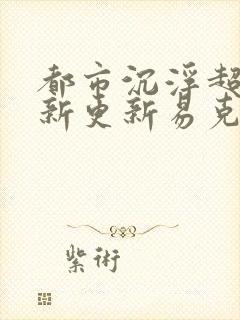 都市沉浮超
新更新易克
紫術